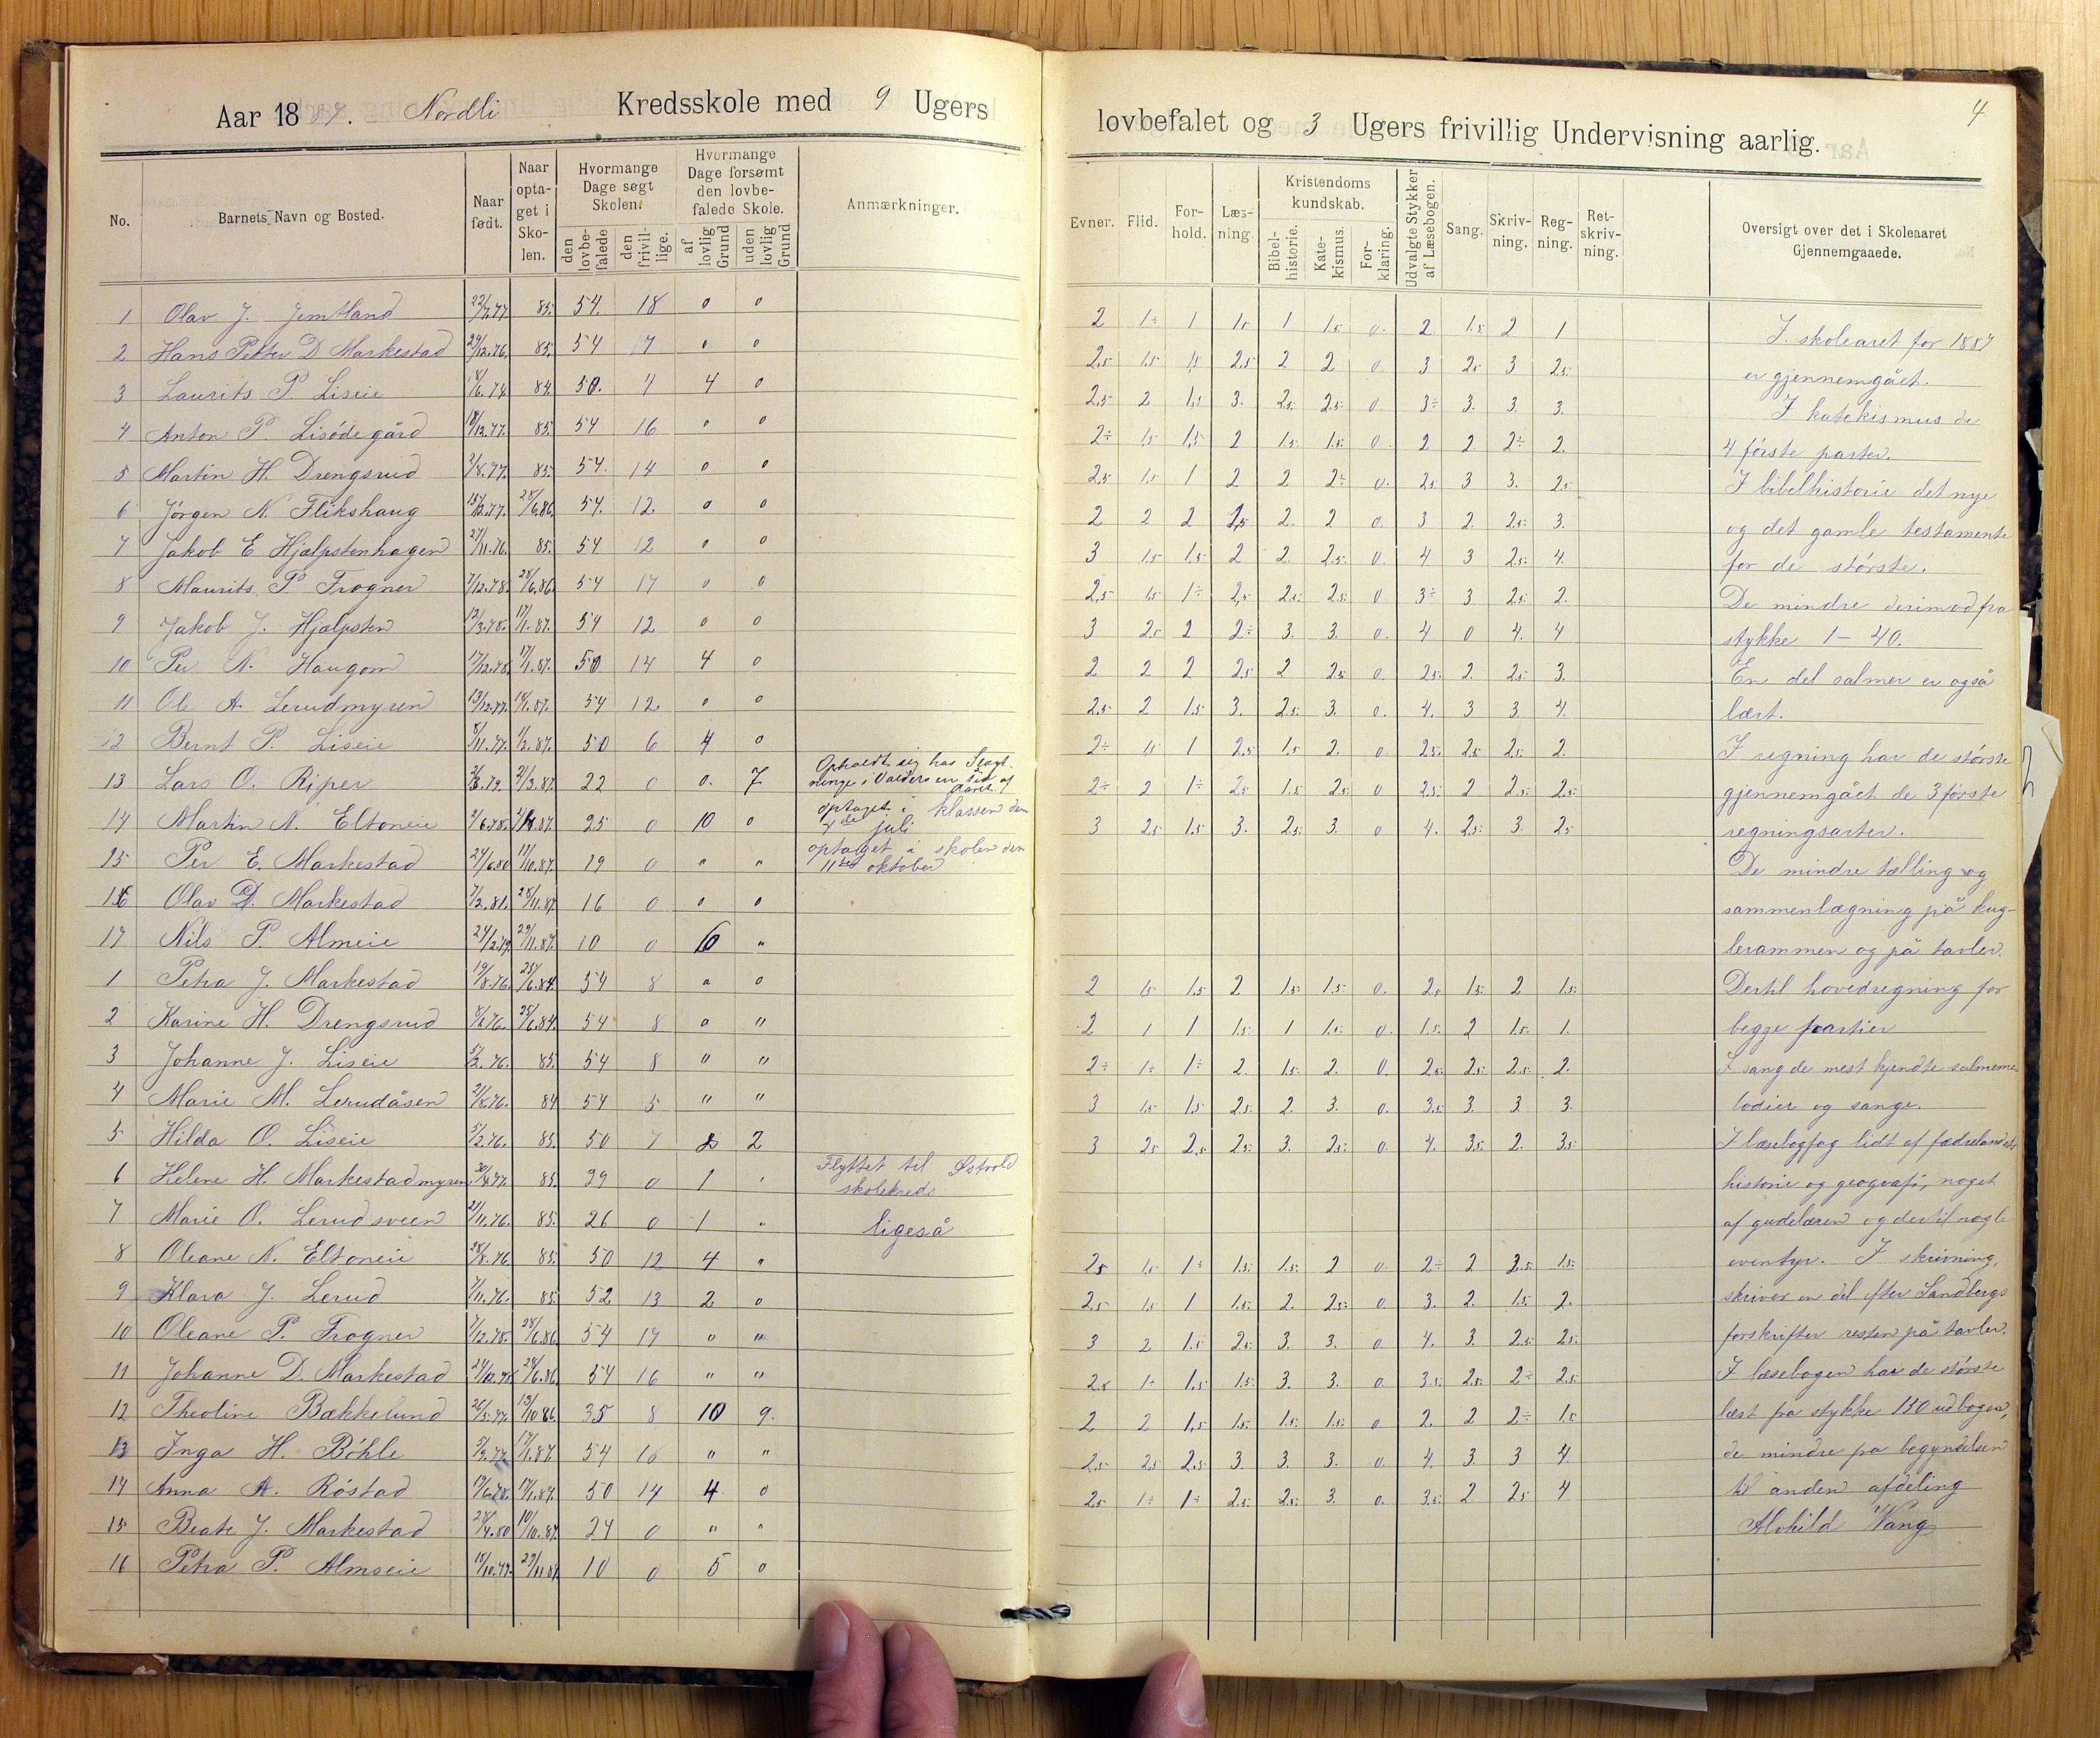 Aar 1887. Nordli Kredsskole med 9 Ugers
No. Barnets Navn og Bosted. Naar født. Naar optaget i Skolen. Hvormange Dage søgt Skolen. Hvormange Dage forsømt den lovbefalede Skole. Anmærkninger.
den lovbefalede den frivillige. af lovlig Grund uden lovlig Grund
1 Olav J. Jemtland 85. 54. 18 0 0
2 Hans Petter D Markestad 29/12.76. 85. 54 17 0 0
3 Laurits P. Liseie 84. 50. 4 4 0
4 Anton P. Lisødegård 85. 54 16 0 0
5 Martin H. Drengsrud 2/8.77. 85. 54. 14 0 0
6 Jørgen N. Flikshaug 28/6.86. 54. 12. 0 0
7 Jakob E Hjælpstenhagen 27/11.76. 85. 54 12 0 0
8 Maurits P Frogner 7/12.78. 28/6.86. 54 17 0 0
9 Jakob J. Hjælpsten 12/3.78. 17/1.87. 54 12 0 0
10 Per N. Haugom 17/12.78. 17/1.87. 50 14 4 0
11 Ole A Lerudmyren 18/1.87. 54 12 0 0
12 Bernt P. Liseie 8/11.77. 1/2.87. 50 6 4 0
13 Lars O. Riper 21/3.87. 22 0 0. 7 Opholdt sig hos Slægtninge i Valders en tid af Aaret
14 Martin N. Eltoneie 2/6.78. 25 0 10 0 optaget i klassen den 4de juli
15 Per E. Markestad 24/6.80 11/10.87. 19 0 " " optaget i skolen den 11te oktober
16 Olav D. Markestad 7/2.81. 28/11.87. 16 0 0 0
17 Nils P. Almeie 24/2.79. 29/11.87. 10 0 6 "
1 Petra J. Markestad 19/8.76. 25/6.84. 54 8 0 0
2 Karine H. Drengsrud 25/6.84. 54 8 0 "
3 Johanne J. Liseie 5/2.76. 85. 54 8 " "
4 Marie M. Lerudåsen 84 54 5 " "
5 Hilda O. Liseie 5/2.76. 85. 50 7 2
6 Helene H. Markestadmyren 85. 29 0 1 Flyttet til Østvold skolekreds
7 Marie O. Lerudsveen 21/11.76. 85. 26 0 1 " ligeså
8 Oleane N. Eltoneie 28/8.76 85. 50 12 4 "
9 Klara J. Lerud 7/11.76. 85. 52 13 2 0
10 Oleane P. Frogner 7/12.78. 28/6.86. 54 17 0 "
11 Johanne D. Markestad 24/12.78 28/6.86. 54 16 " "
12 Theoline Bækkelund 26/5.77. 13/10 86. 35 8 10 9.
13 Inga H. Bøhle 5/3.77. 17/1.87 54 16 " "
14 Anna A. Røstad 17/1.87. 50 14 4 0
15 Beate J. Markestad 28/4.80 10/10.87. 24 0 " "
16 Petra P. Almseie 18/10.77. 29/11.87. 10 0 5 0
4
lovbefalet og 3 Ugers frivillig Undervisning aarlig.
Evner. Flid. Forhold. Læsning. Kristendomskundskab. Udvalgte Stykker af Læsebogen. Sang. Skrivning. Regning. Retskrivning. Oversigt over det i Skoleaaret Gjennemgaaede.
Bibelhistorie. Katekismus. Forklaring.
2 1÷ 1 1.5 1 1.5 0. 2 1.5 2 1
2.5 1.5 1.5 2.5 2 2 0. 3 2.5 3 2.5.
2.5 2 1.5 3. 2.5. 2.5. 0. 3÷ 3. 3. 3.
2÷ 1.5 1.5 2 1.5. 1.5. 0. 2 2 2÷ 2.
2.5 1.5 1 2 2 2÷ 0. 2.5. 3 3. 2.5.
2 2 2 1.5 2. 2 0. 3 2. 2.5. 3.
3 1.5 1.5 2 2. 2.5. 0. 4. 3 2.5. 4.
2.5 1.5 1÷ 2.5 2.5. 2.5. 0. 3÷ 3 2.5. 2.
3 2.5 2 2÷ 3. 3. 0. 4 0 4. 4
2 2 2 2.5 2 2.5 0. 2.5. 2. 2.5. 3.
2.5 2 1.5 3. 2.5. 3. 0. 4. 3 3. 4.
2÷ 1.5 1 2.5 1.5 2. 0. 2.5. 2.5 2.5. 2.
2÷ 2 1÷ 2.5 1.5 2.5. 0 2.5. 2 2.5. 2.5.
3 2.5 1.5 3. 2.5. 3. 0 4. 2.5. 3. 2.5
2 1.5 1.5 2 1.5. 1.5. 0. 2.5 1.5. 2 1.5.
2 1 1 1.5. 1 1.5. 0. 1.5. 2 1.5. 1.
2÷ 1÷ 1÷ 2. 1.5. 2. 0. 2.5. 2.5. 2.5. 2.
3 1.5 1.5 2.5 2. 3. 0. 3.5. 3. 3. 3.
3 2.5 2.5 2.5. 3. 2.5. 0. 4. 3.5. 2. 3.5
2.5 1.5 1÷ 1.5. 1.5. 2 0. 2÷ 2 3.5. 1.5.
2.5 1.5 1 1.5. 2. 2.5. 0. 3. 2. 1.5. 2.
3 2 1.5 2.5 3. 3. 0. 4. 3 2.5. 2.5.
2.5 1÷ 1.5 1.5. 3. 3. 0. 3.5. 2.5. 2÷ 2.5.
2 2 1.5 1.5. 1.5. 1.5. 0 2. 2 2÷ 1.5
2.5 2.5 2.5 3. 3. 3. 0. 4. 3. 3 4.
2.5 1÷ 1÷ 2.5 2.5. 3. 0. 3.5. 2 2.5 4
I skolearet for 1887
er gjennemgået.
I katekismus de
4 første parter.
I bibelhistorie det nye
og det gamle testamente
for de største.
De mindre derimod fra
stykke 1 – 40.
En del salmer er også
lært.
I regning har de største
gjennemgået de 3 første
regningsarter.
De mindre tælling og
sammenlægning på kug-
lerammen og på tavler.
Dertil hovedregning for
begge partier
I sang de mest kjendte salmeme-
lodier og sange.
I læsebogfag lidt af fædrelandets
historie og geografi, noget
af gudelæren og dertil nogle
eventyr. I skrivning,
skriver en del efter Sandbergs
forskrifter resten på tavler.
I læsebogen har de største
læst fra stykke 130 ud bogen,
de mindre fra begyndelsen
til anden afdeling
Alvhild Vang